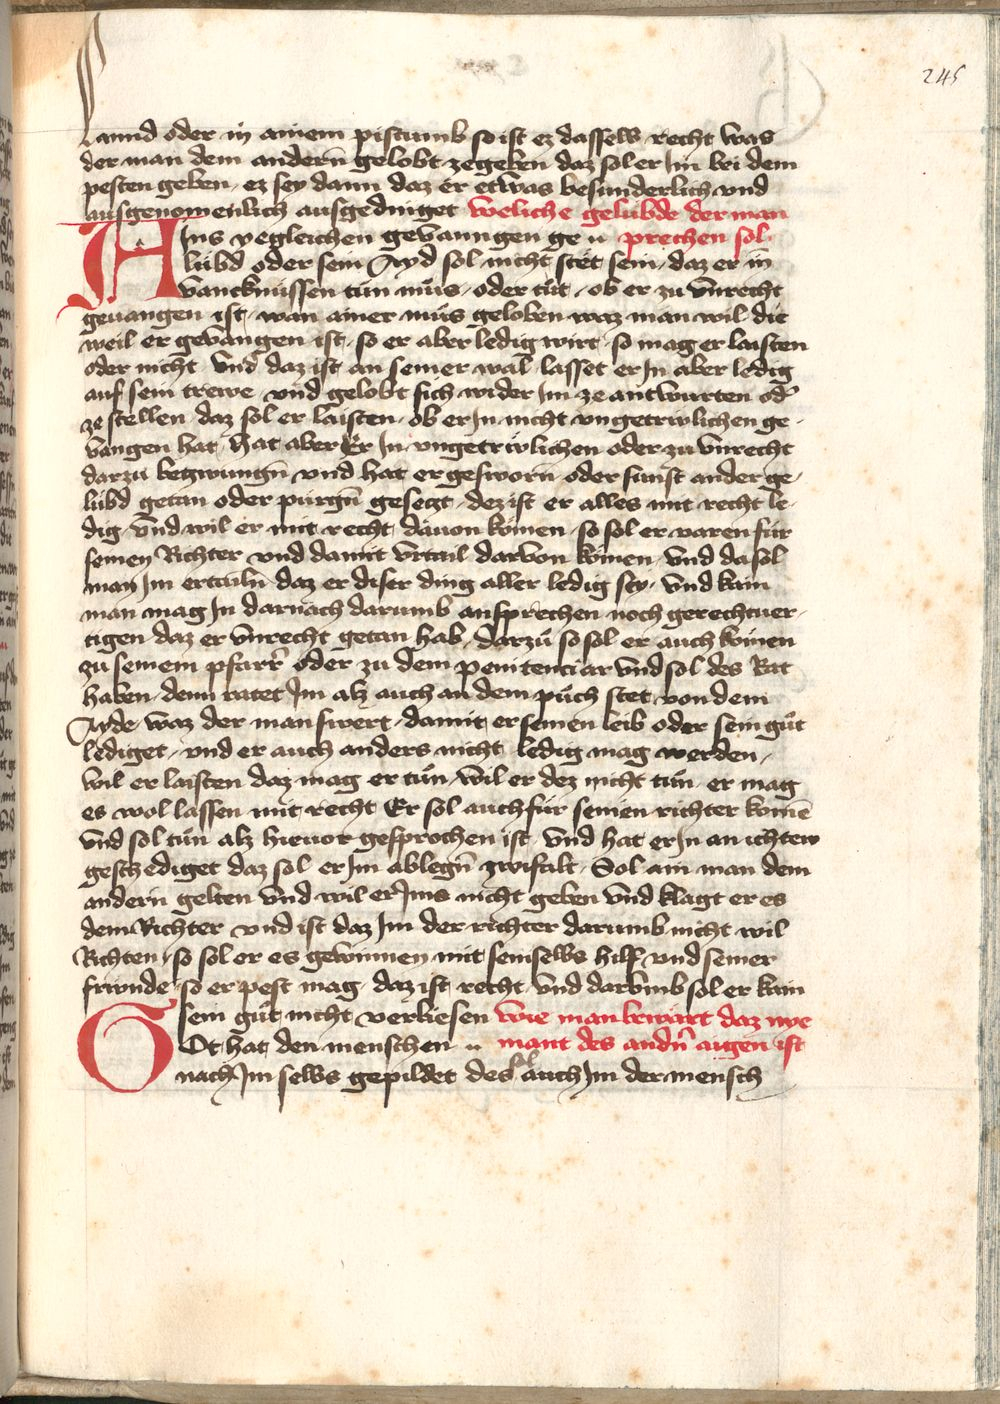 245
Lannd oder in ainem pistumb so ist ez dasselb recht Was
der man dem andern gelobt zegeben daz sol er Jm bei dem
pesten geben, ez sey dann daz er etwas besunderlich vnd
ausgenomenlich ausgedinget Weliche gelubde der man
INs yegleichen gevanngen ge ıı prechen sol
lübd oder sein Ayd sol nicht stet sein, daz er in
vancknüssen tun müs, oder tüt, ob er zu Vnrecht
geuangen ist, wan ainer müs geloben waz man wil die
weil er gevangen ist, so er aber ledig wirt so mag er laisten
oder nicht Vnd daz ist an seiner wal lasset er Jn aber ledig
auf sein trewe vnd gelobt sich wider Jm ze antwurten od'
ze stellen, daz sol er laisten, ob er Jn nicht vngetrwlichen ge-
vangen hat, Hat aber Er Jn vngetrwlichen oder zu Vnrecht
darzu betzwungn̄ vnd hat er gesworn oder sunst ander ge-
lübd getan oder purgn̄ gesetzt, dez ist er alles mit recht le-
dig Vnd wil er mit recht dauon komen so sol er varen für
seinen Richter vnd damit Vrtail darvon komen, Vnd da sol
man Jm ertailn daz er diser ding aller ledig sey, Vnd kain
man mag Jn darnach darumb ansprechen noch gerechtuer-
tigen daz er Vnrecht getan hab, darzü so sol er auch komen
zu seinem pfarr' oder zu dem penitenciar Vnd sol des Rat
haben, denn ratet Jm alz auch an dem püch stet von dem
Ayde, waz der man swert, damit er seinen leib oder sein güt
lediget, vnd er auch anders nicht ledig mag werden,
Wil er laisten daz mag er tün, Wil er dez nicht tün, er mag
es wol lassen mit recht Er sol auch für seinen richter komē
Vnd sol tün alz hieuor gesprochen ist, Vnd hat er Jn an ichtew
geschediget daz sol er Jm ablegn̄ zwifalt, Sol ain man dem
andern gelten Vnd wil er Jms nicht geben Vnd klagt er es
dem Richter vnd ist daz Jm der richter darumb nicht wil
Richten, so sol er es gewinnen mit sein selbs hilf vnd seiner
friunde so er pest mag, daz ist recht, Vnd darumb sol er kain
sein güt nicht verliesen Wie man bewärt daz nye
GOt hat den menschen ıı mant des andn̄ aigen ist
nach Jm selbs gepildet des sol auch Jm der mensch